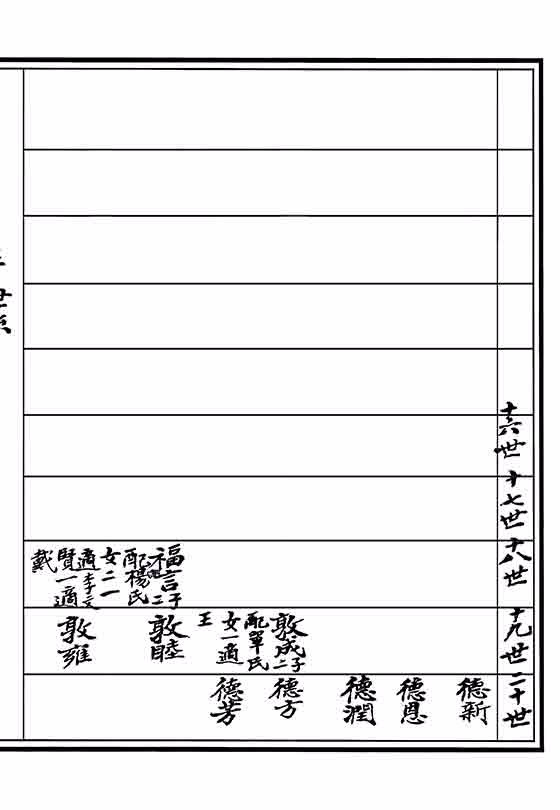 十六世
十七世
十八世
十九世
二十世
福言 子二
配楊氏
女二一
適李文
賢一適
戴
敦成 子二
配單氏
女一適
王
敦睦
敦雍
德新
德恩
德潤
德方
德芳
世系